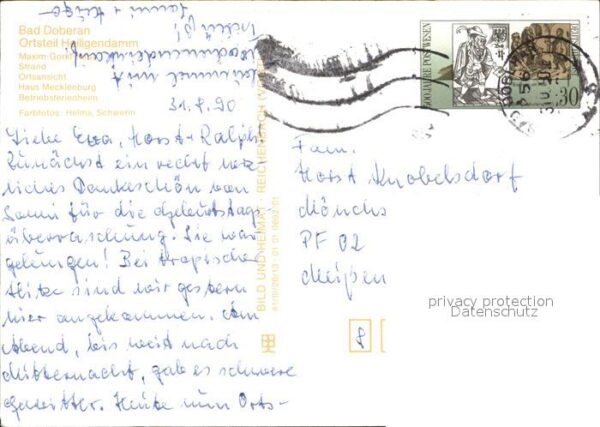 Bad Doberan
Ortsteil Heiligendamm
Maxim-Gorki
Strand
Ortsansicht
Haus Mecklenburg
Betriebsferienheim
Farbfotos: Helma, Schwerin
31.7.90
Liebe Eva, Horst + Ralph
Zunächst ein recht herz-
liches Dankeschön von
Sanni für die Geburtstags-
überraschung. Sie war
gelungen! Bei tropischer
Hitze sind wir gestern
hier angekommen. Am
Abend, bis weit nach
Mitternacht, gab es schwere
Gewitter. Heute zum Orts-
bummel mit
BILD UND HEIMAT · REICHENBACH
500 JAHRE POSTWESEN
30
Fam.
Horst Knobelsdorf
Mönchs
PF 02
Meißen
privacy protection
Datenschutz